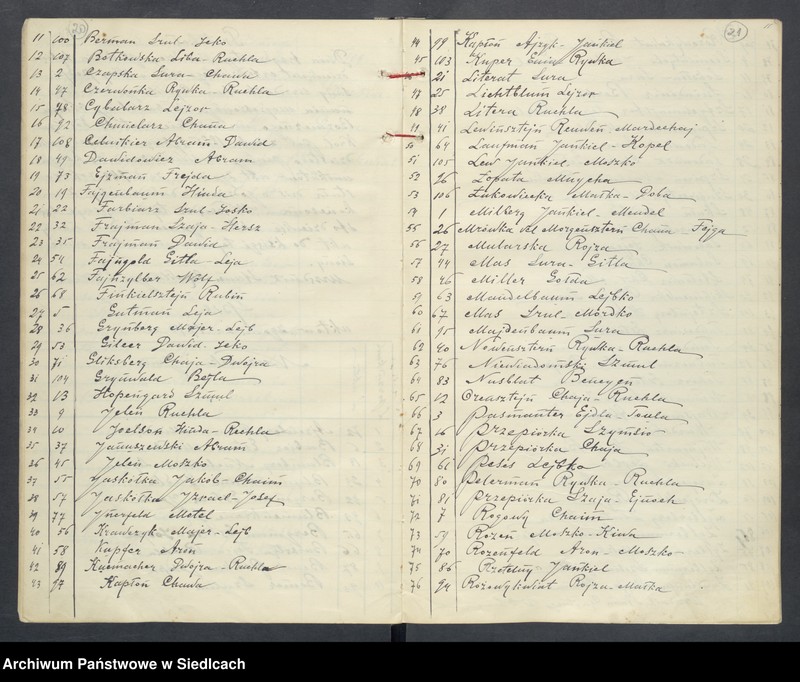 20
11 100 Berman Srul-Icko
12 107 Botkowska Liba-Ruchla
13 2 Czapska Sura-Chawa
14 47 Czerwonka Rywka-Ruchla
15 78 Cybularz Lejzor
16 92 Chanclarz Chana
17 108 Celnikier Abram-Dawid
18 49 Dawidowicz Abram
19 73 Ejzman Frejda
20 19 Fajgenbaum Hinda
21 22 Farbiarz Srul-Josko
22 32 Frajman Szaja-Hersz
23 35 Frajman Dawid
24 54 Fajngold Gitla-Leja
25 62 Fajnzylber Wolf
26 68 Finkielsztejn Rubin
27 5 Gutman Leja
28 36 Grynberg Majer-Lejb
29 53 Dawid-Icko
30 71 Gliksberg Chaja-Dwojra
31 104 Grynwald Bejla
32 13 Hopengard Szmul
33 9 Jelen Ruchla
34 10 Joelson Hinda-Ruchla
35 37 Januszewski Abram
36 45 Jelen Moszko
37 55 Jaskołka Jakób-Chaim
38 57 Jaskołka Izrael-Josef
39 77 Motel
40 56 Krawczyk Majer-Lejb
41 58 Kupfer Aron
42 89 Kacmacher Dwojra-Ruchla
43 97 Kapłon Chawa
21
44 99 Kapłon Ajzyk-Jankiel
45 103 Kuper Rywka
21 Literat Sura
47 25 Lichtblum Lejzor
48 38 Litera Ruchla
41 Lewinsztejn Reuwen-Mardechaj
50 64 Laufman Jankiel-Kopel
51 105 Lew Jankiel-Moszko
52 26 Łopata
53 106 Łukowiecka Maśka-Doba
54 1 Milberg Jankiel-Mendel
55 26 Mrówka vel Morgensztern Chana-Fajga
56 27 Mularska Rojza
57 44 Mas Sura-Gitla
58 46 Miller Gołda
59 63 Mandelbaum Lejbko
60 67 Mas Srul-Mordko
61 95 Majdenbaum Sura
62 40 Nowensztern Rywka-Ruchla
63 76 Niewiadomski Szmul
64 83 Nusblat
65 12 Chaja-Ruchla
66 3 Pasmanter Ejdla-
67 16 Przepiórka Szymsio
68 31 Przepiórka Chaja
69 66 Peses Lejbko
70 80 Pelerman Rywka-Ruchla
71 81 Przepiórka Szaja-Ejnoch
72 7 Rogowy Chaim
73 59 Rozen Moszko-Kiwa
74 70 Rozenfeld Aron-Moszko
75 86 Rzetelny Jankiel
76 94 Rozowykwiat Rojza-Małka
Archiwum Państwowe w Siedlcach